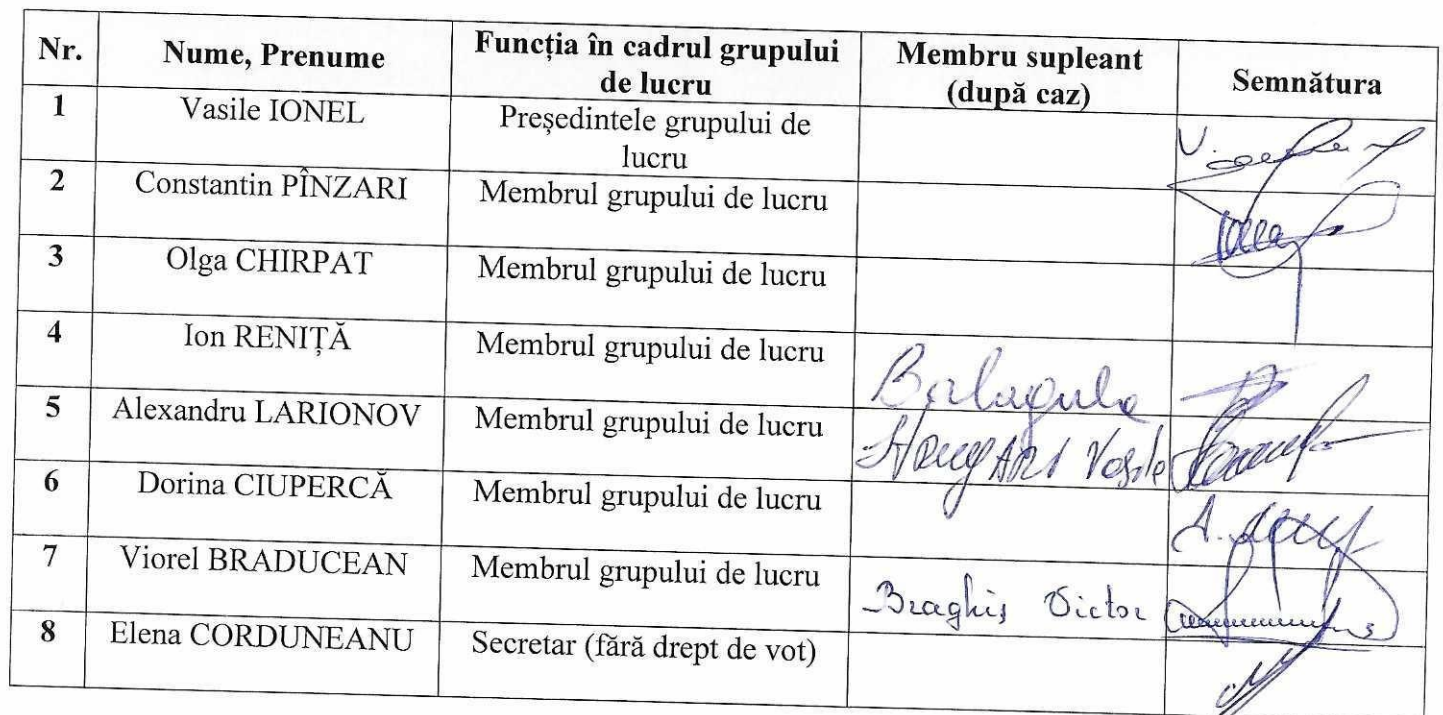 Nr. Nume, Prenume Funcția în cadrul grupului de lucru Membru supleant (după caz) Semnătura
1 Vasile IONEL Președintele grupului de lucru
2 Constantin PÎNZARI Membrul grupului de lucru
3 Olga CHIRPAT Membrul grupului de lucru
4 Ion RENIȚĂ Membrul grupului de lucru
5 Alexandru LARIONOV Membrul grupului de lucru Vasile
6 Dorina CIUPERCĂ Membrul grupului de lucru
7 Viorel BRADUCEAN Membrul grupului de lucru Braghiș Victor
8 Elena CORDUNEANU Secretar (fără drept de vot)